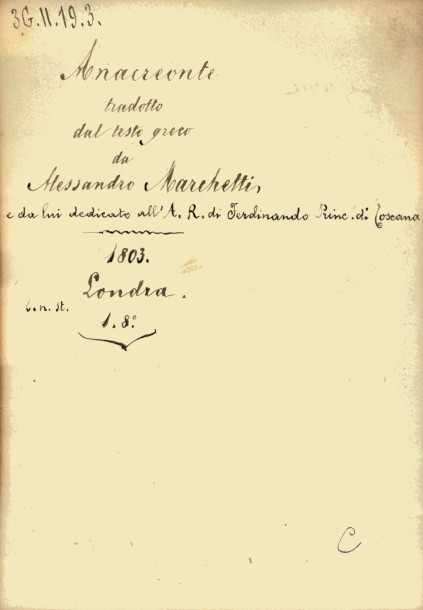 3G.II.19.3.
Anacreonte
tradotto
dal testo greco
da
Alessandro Marchetti,
e da lui dedicato all'A. R. di Ferdinando Princ. di Toscana
1803.
Londra.
s. n. st.
1. 8º
C